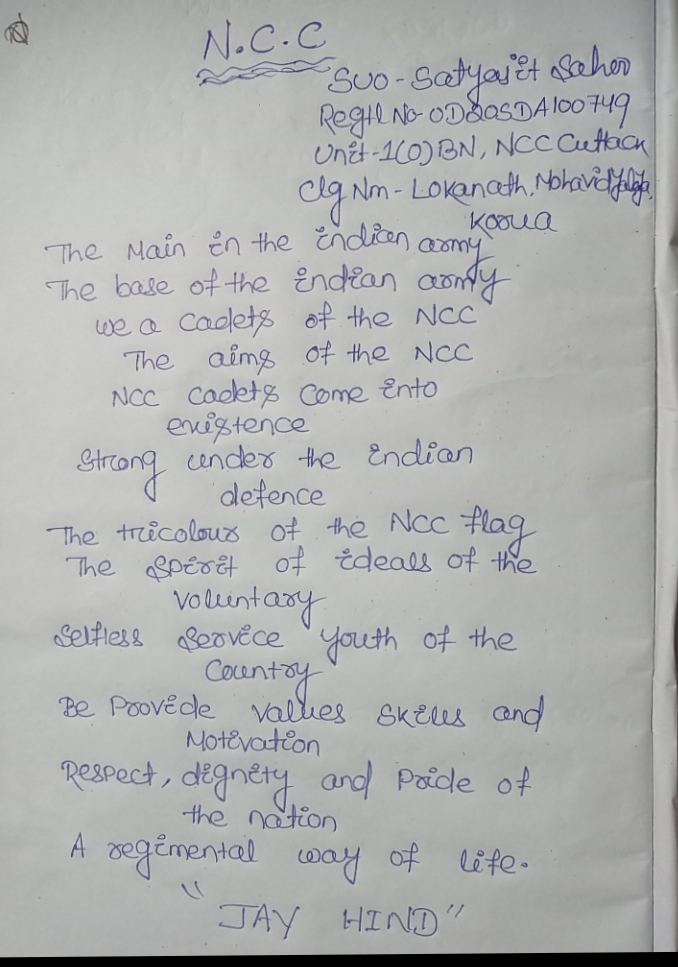 N.C.C
SUO - Satyajit Sahoo
Regtl No - OD20SDA100749
Unit - 1(O) BN, NCC Cuttack
Clg Nm - Lokanath, Mohavidyalaya,
Korua
The Main in the indian army
The base of the indian army
we a Cadets of the NCC
The aims of the NCC
NCC Cadets Come into
existence
Strong under the indian
defence
The tricolour of the NCC flag
The Spirit of ideals of the
voluntary
Selfless Service youth of the
Country
Be Provide values Skills and
Motivation
Respect, dignity and Pride of
the nation
A regimental way of life.
"JAY HIND"